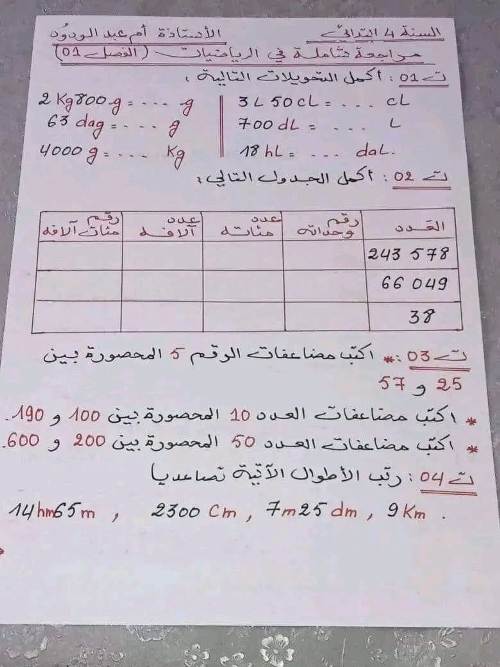 السنة 4 ابتدائي الأستاذة أم عبد الودُود
مراجعة شاملة في الرياضيات (الفصل 01)
ت 01 : أكمل التحويلات التالية :
3L 50cL = ... cL
2 Kg 800 g = ... g
700 dL = ... L
63 dag = ... g
18 hL = ... daL.
4000 g = ... Kg
ت 02 : أكمل الجدول التالي :
العَدد رقم وحداته عدد مئاته عدد آلافه رقم مئات آلافه
243 578
66 049
38
ت 03 : * اكتب مضاعفات الرقم 5 المحصورة بين
25 و 57
* اكتب مضاعفات العدد 10 المحصورة بين 100 و 190.
* اكتب مضاعفات العدد 50 المحصورة بين 200 و 600.
ت 04 : رتب الأطوال الآتية تصاعديا
14hm65m , 2300 Cm , 7m25 dm , 9 Km .